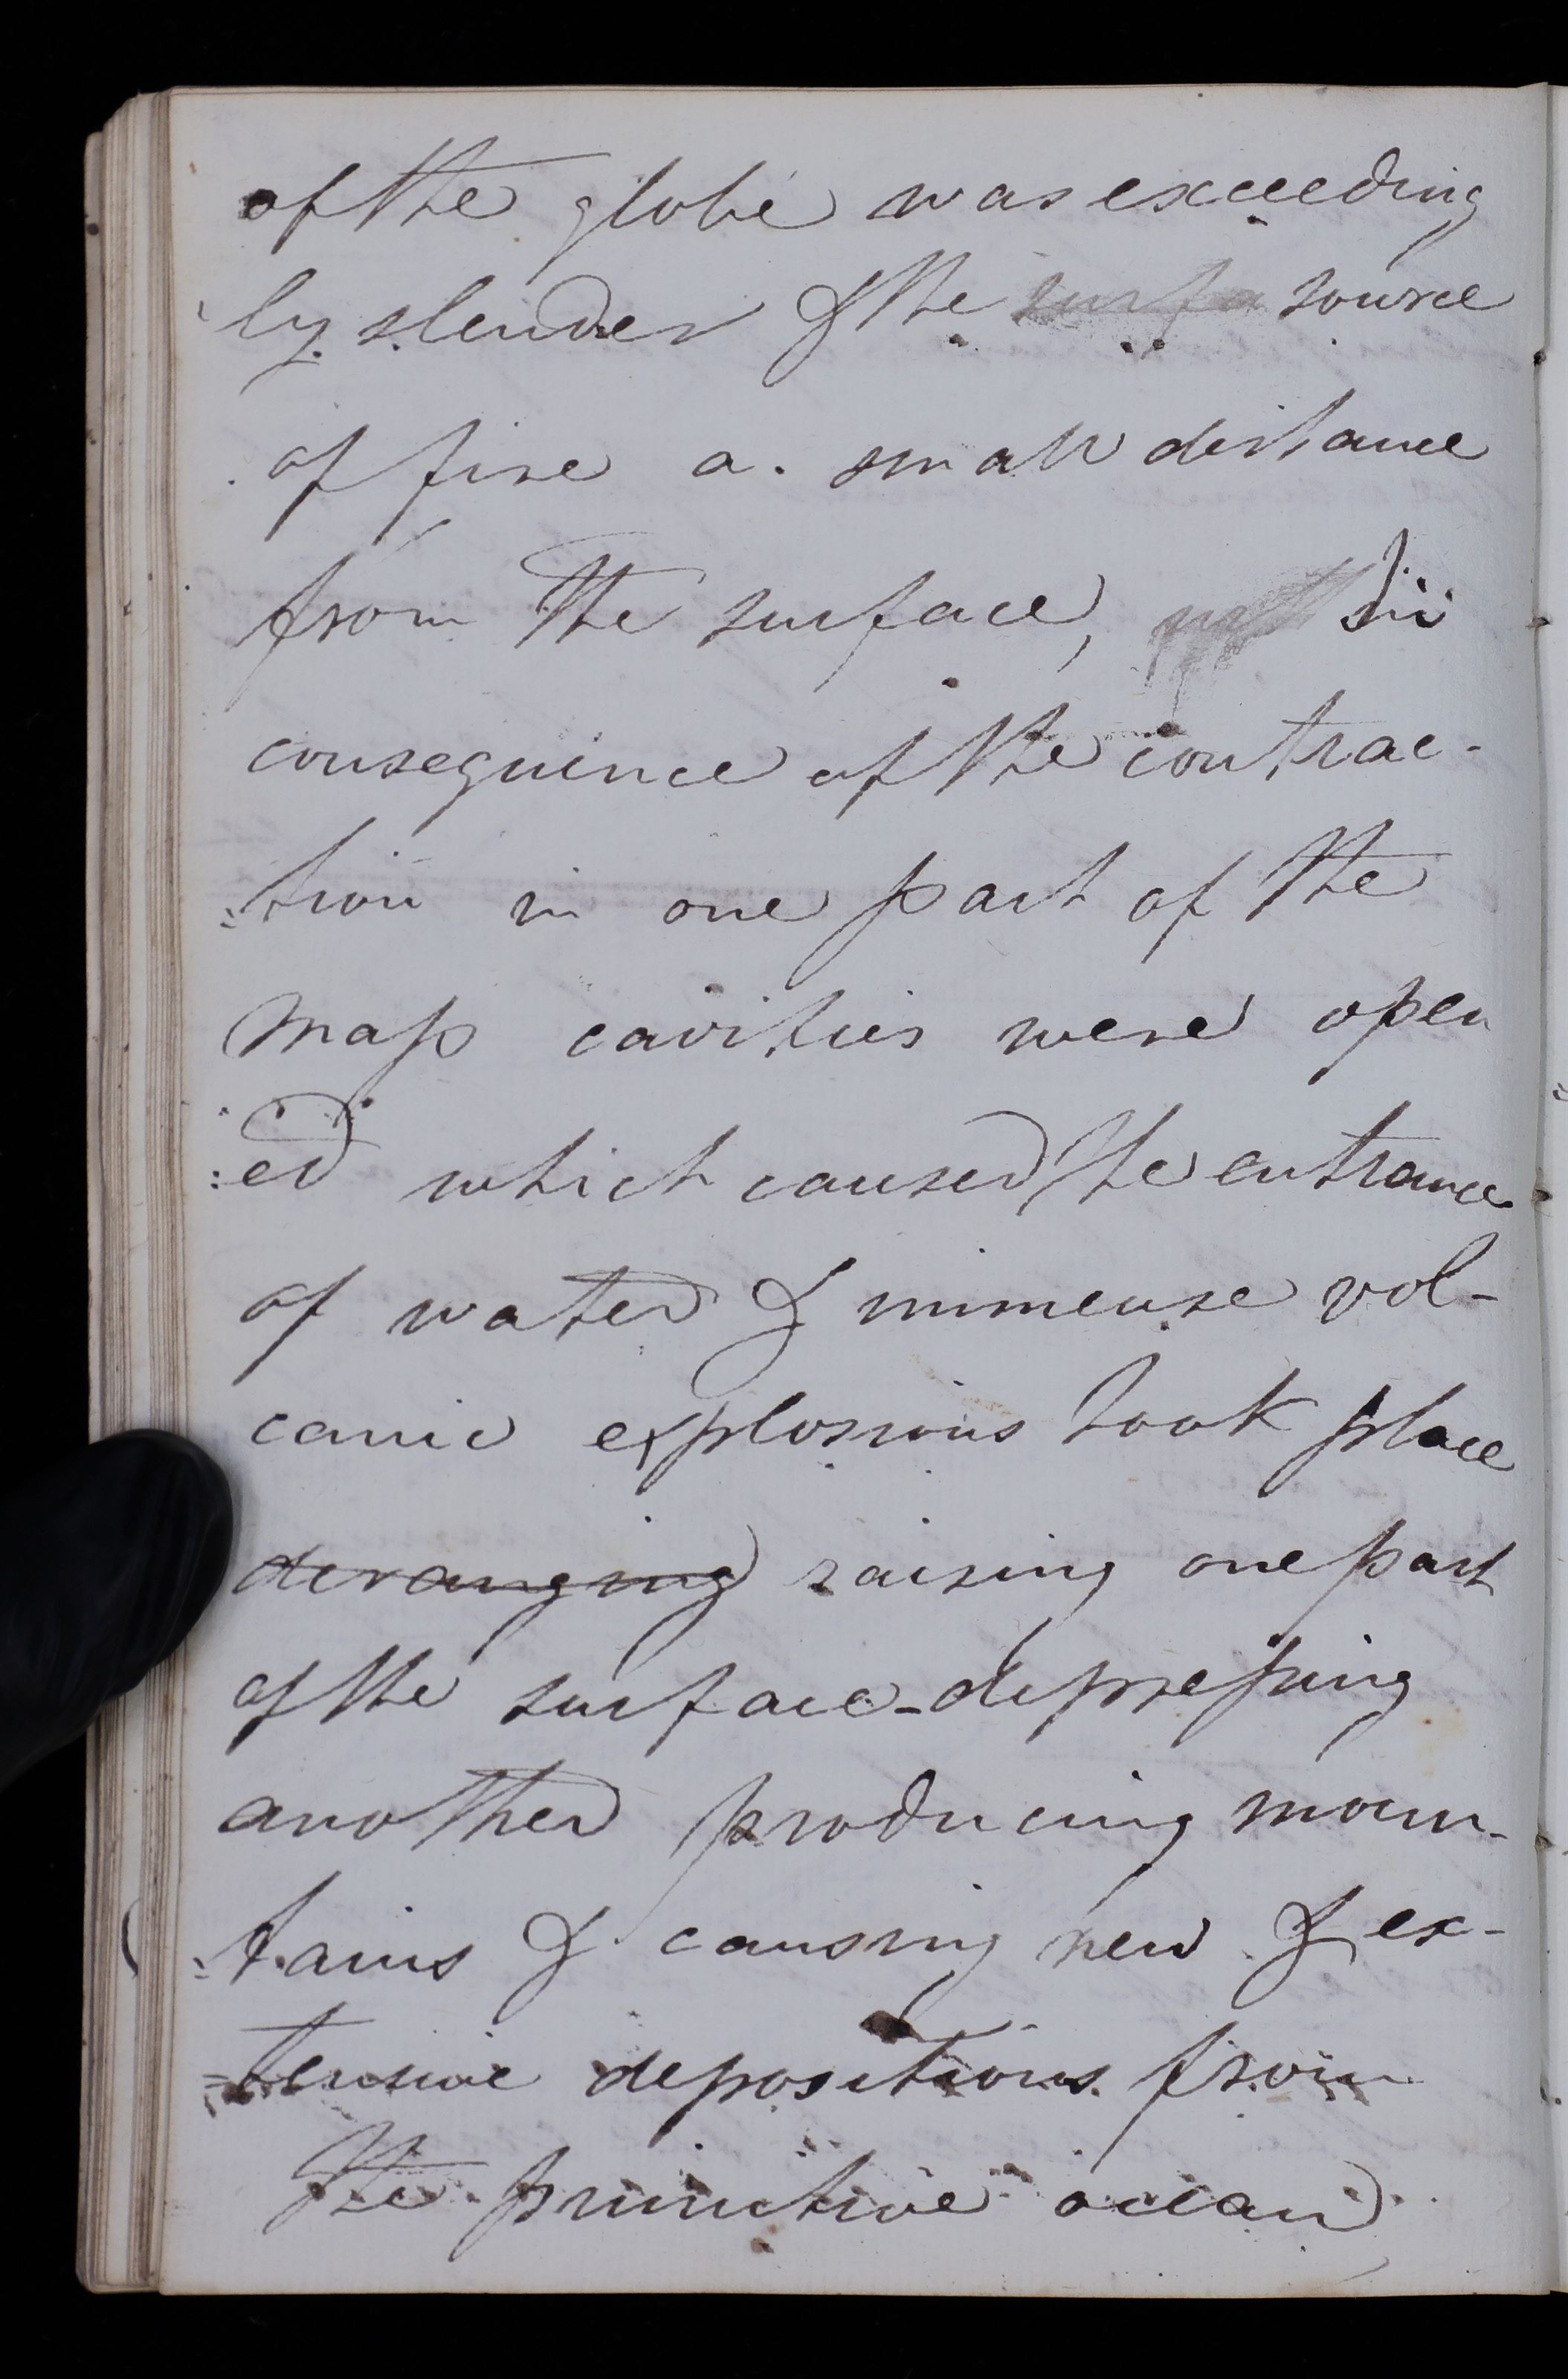 of the globe was exceeding
ly slender & the surfa source
of fire a small distance
from the surface, in
consequence of the contrac-
=tion in one part of the
mass cavities were open
:ed which caused the entrance
of water & immense vol-
canic explosions took place
deranging raising one part
of the surface - depressing
another producing moun-
=tains & causing new & ex-
=tensive depositions from
the primitive ocean